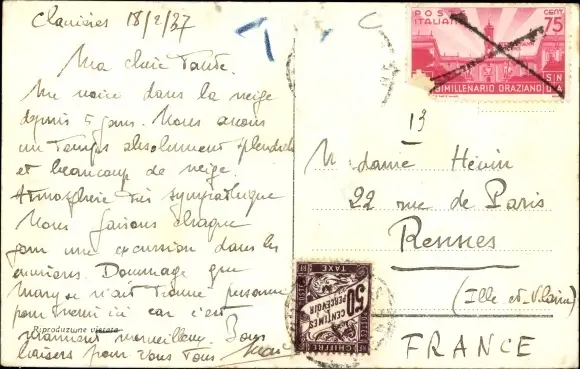 Clavières 18/2/37
Ma chère Tante.
Me voici dans la neige
depuis 5 jours. Nous avons
un temps absolument splendide
et beaucoup de neige.
Atmosphère très sympathique
Nous faisons chaque
jour une excursion dans les
environs. Dommage que
Mary n'ait trouvé personne
pour venir ici car c'est
vraiment merveilleux. Bons
baisers pour vous tous
Riproduzione vietata
POSTE ITALIANE
CENT. 75
BIMILLENARIO ORAZIANO
13
Madame Hévin
22 rue de Paris
Rennes
(Ille et Vilaine)
FRANCE
CHIFFRE TAXE
50 CENTIMES A PERCEVOIR
POSTES